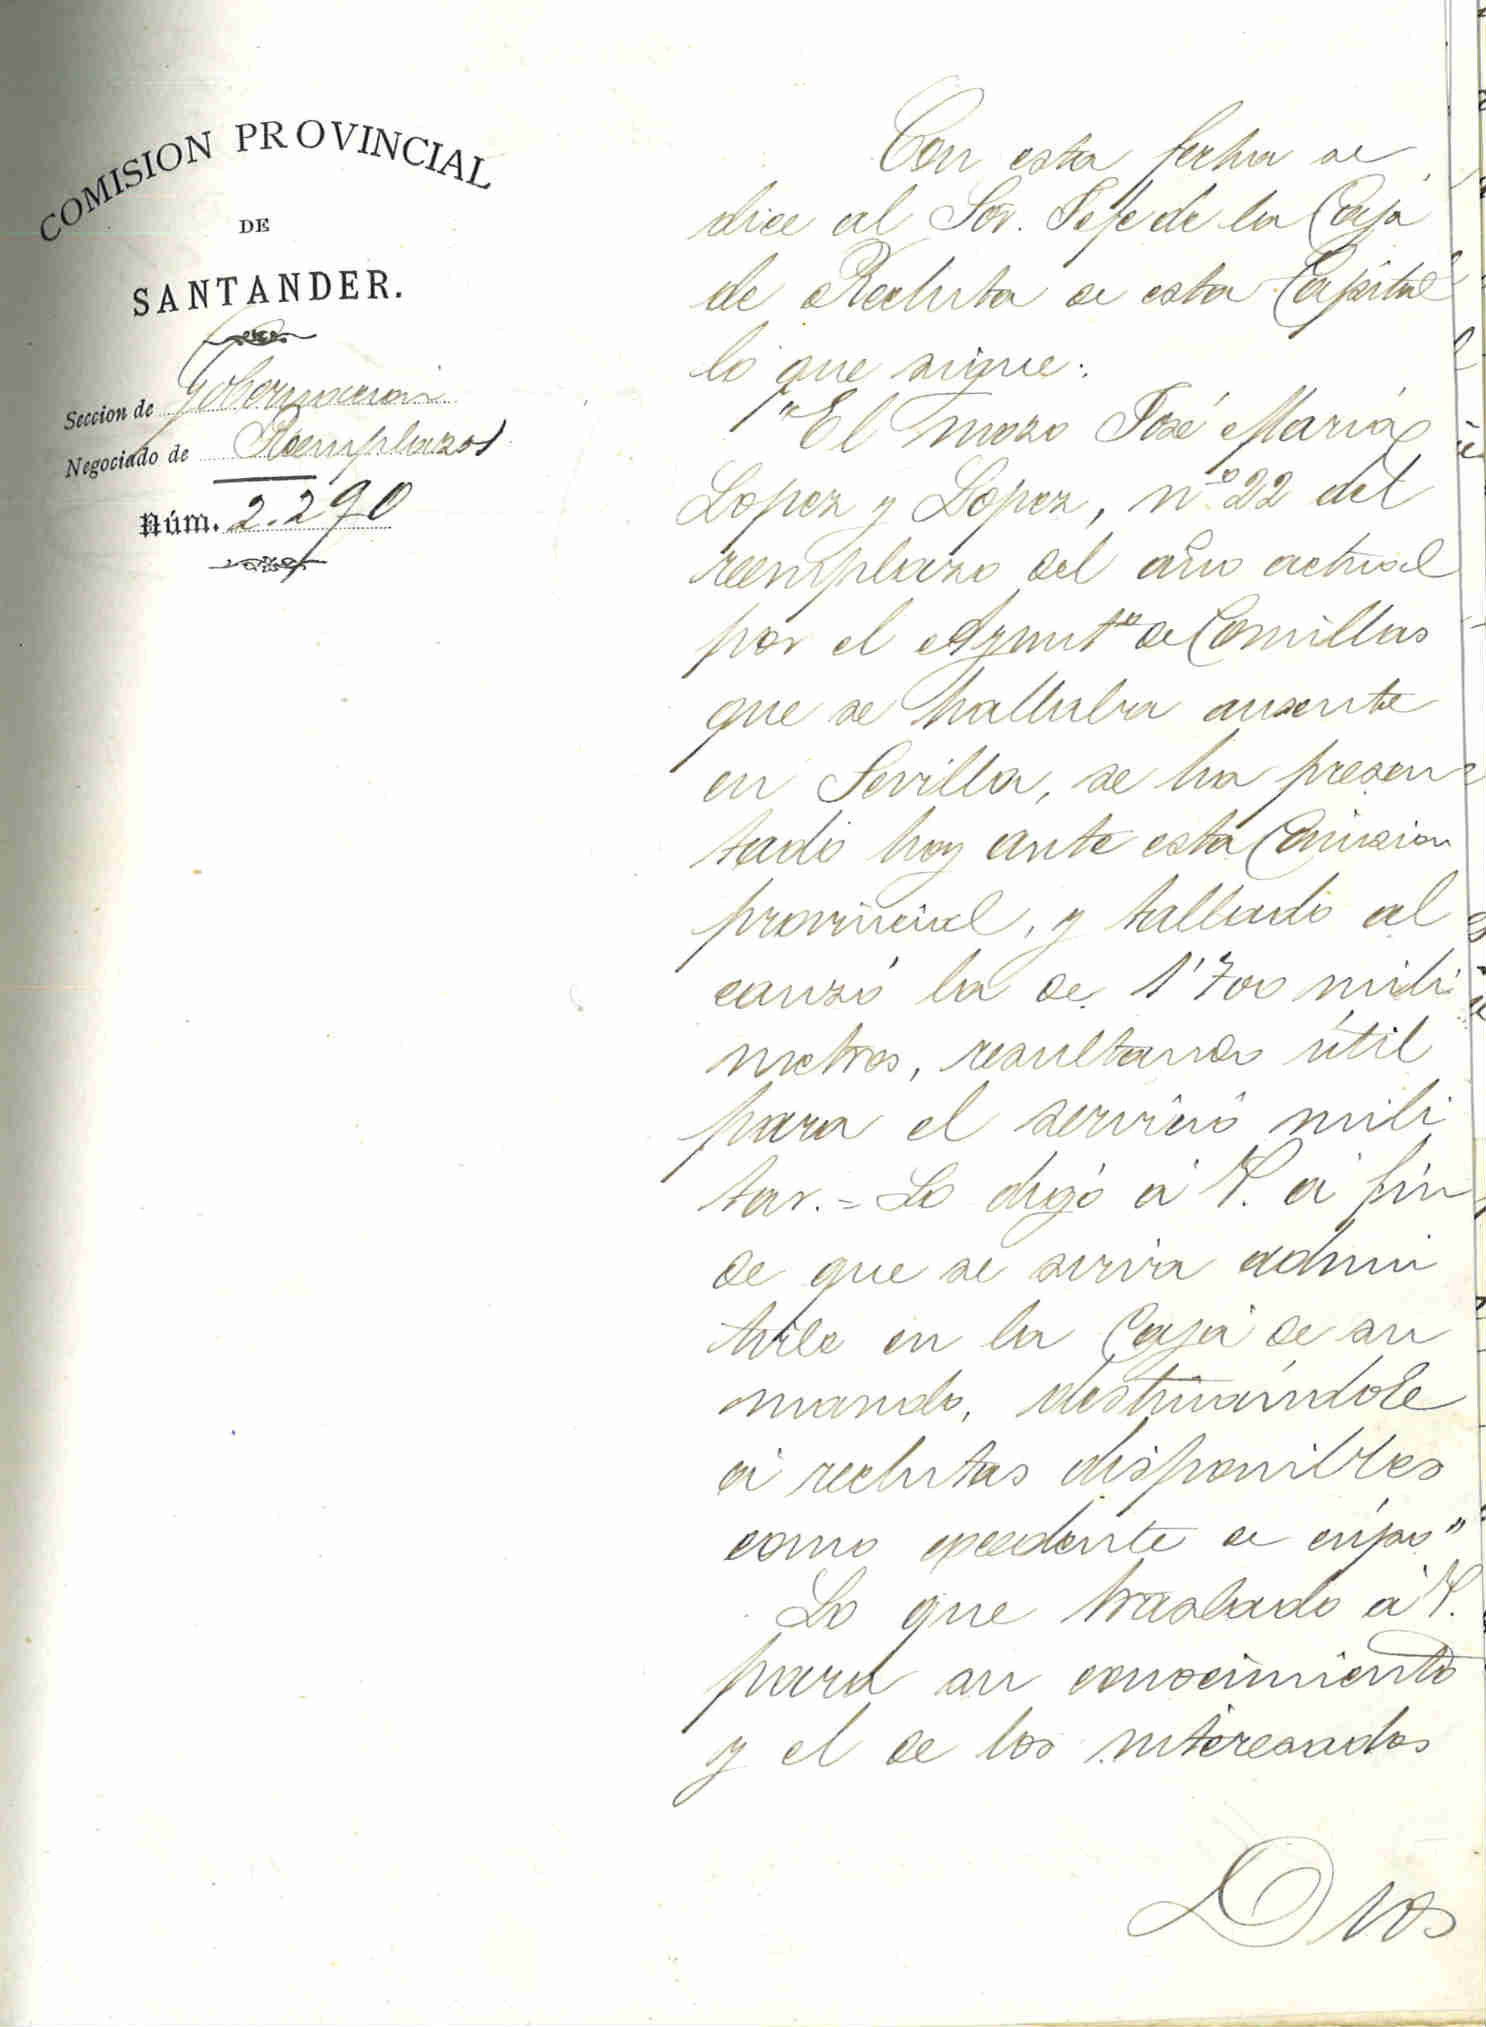 COMISION PROVINCIAL
DE
SANTANDER.
Seccion de Gobernacion
Negociado de Reemplazos
Núm. 2.290
Con esta fecha se
dice al Sor. Jefe de la Caja
de Recluta de esta Capital
lo que sigue:
"El mozo José María
Lopez y Lopez, nº 22 del
reemplazo del año actual
por el Ayuntº de Comillas
que se hallaba ausente
en Sevilla, se ha presen
tado hoy ante esta Comision
provincial, y tallado al
canzó la de 1'700 milí
metros, resultando útil
para el servicio mili
tar. = Lo digo á V. á fin
de que se sirva admi
tirle en la Caja de su
mando, destinándole
á reclutas disponibles
como excedente de cupo"
Lo que traslado á V.
para su conocimiento
y el de los interesados
Dios